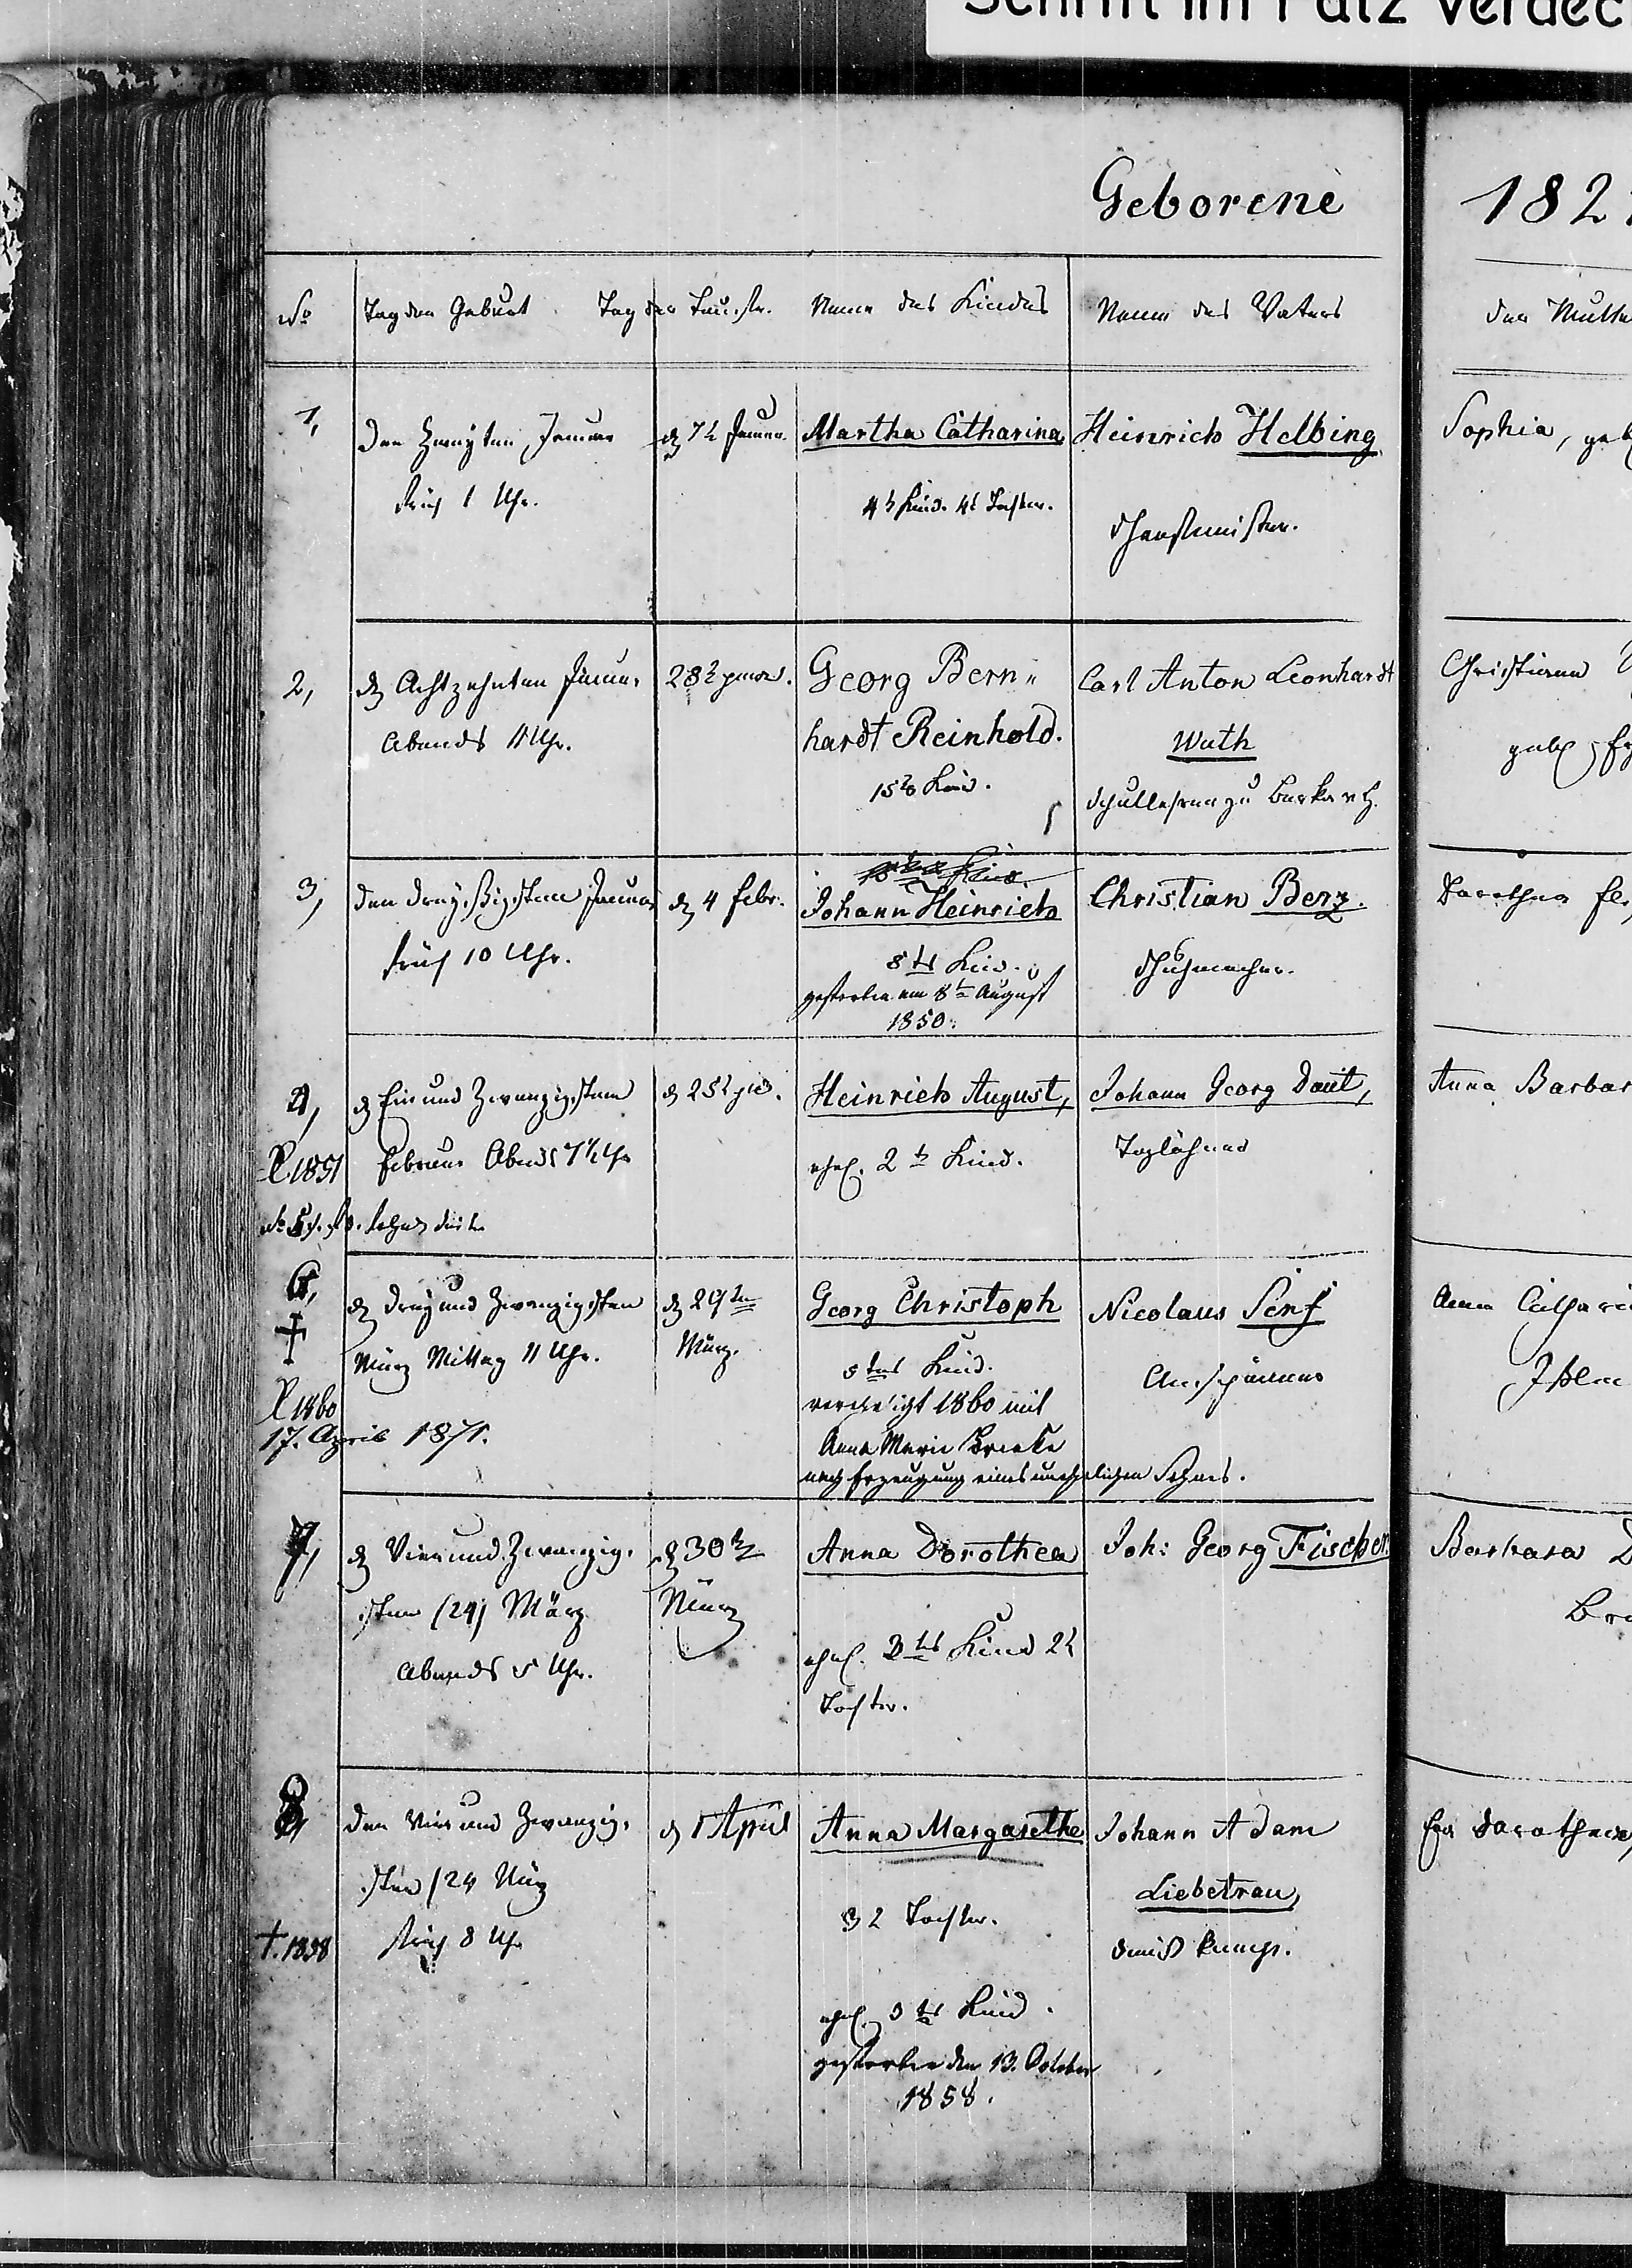 Schrift im Falz verdec
Geborene
182
No
Tag der Geburt
Tag der Taufe.
Name des Kindes
Name des Vaters
der Mutter
1,
Den Zweyten Januar
früh 1 Uhr.
d 7t Januar.
Martha Catharina
4t Kind. 4t Tochter.
Heinrich Helbing
Sophia, geb
2,
d Achtzehnten Januar
Abends 11 Uhr.
28t
Georg Bern„
hardt Reinhold.
15t Kind.
Carl Anton Leonhardt
Wuth
Schullehrer zu
Christiana
geb
3,
den dreyßigsten Januar
früh 10 Uhr.
d 4 Febr.
Johann Heinrich
8tes Kind.
gestorben am 8ten August
1850.
Christian Berz.
Schuhmacher.
Dorothea
4,
1851
d Ein und Zwanzigsten
Februar Abends 7½ Uhr
d 25t
Heinrich August,
ehel. 2tes Kind.
Johann Georg Daut,
Taglöhner
Anna Barbar
6,
†
1860
17. April 1871.
d drey und Zwanzigsten
März Mittag 11 Uhr.
d 29ten
März.
Georg Christoph
5tes Kind.
verehligt 1860 mit
Anna Maria
nach Erzeugung eines unehelichen Sohnes.
Nicolaus Senf
Anspänner
Anna Cathari
7,
d Vier und Zwanzig.
sten (24) März
Abends 5 Uhr.
d 30ten
März
Anna Dorothea
ehel. 3tes Kind 2t
Tochter.
Joh: Georg Fischer
Barbara
8,
† 1858
den Vier und Zwanzig.
sten (24 März
früh 8 Uhr
d 1 April
Anna Margarethe
3t Tochter.
ehel. 3tes Kind.
gestorben den 13. October
1858.
Johann Adam
Liebetrau,
Eva Dorothea,